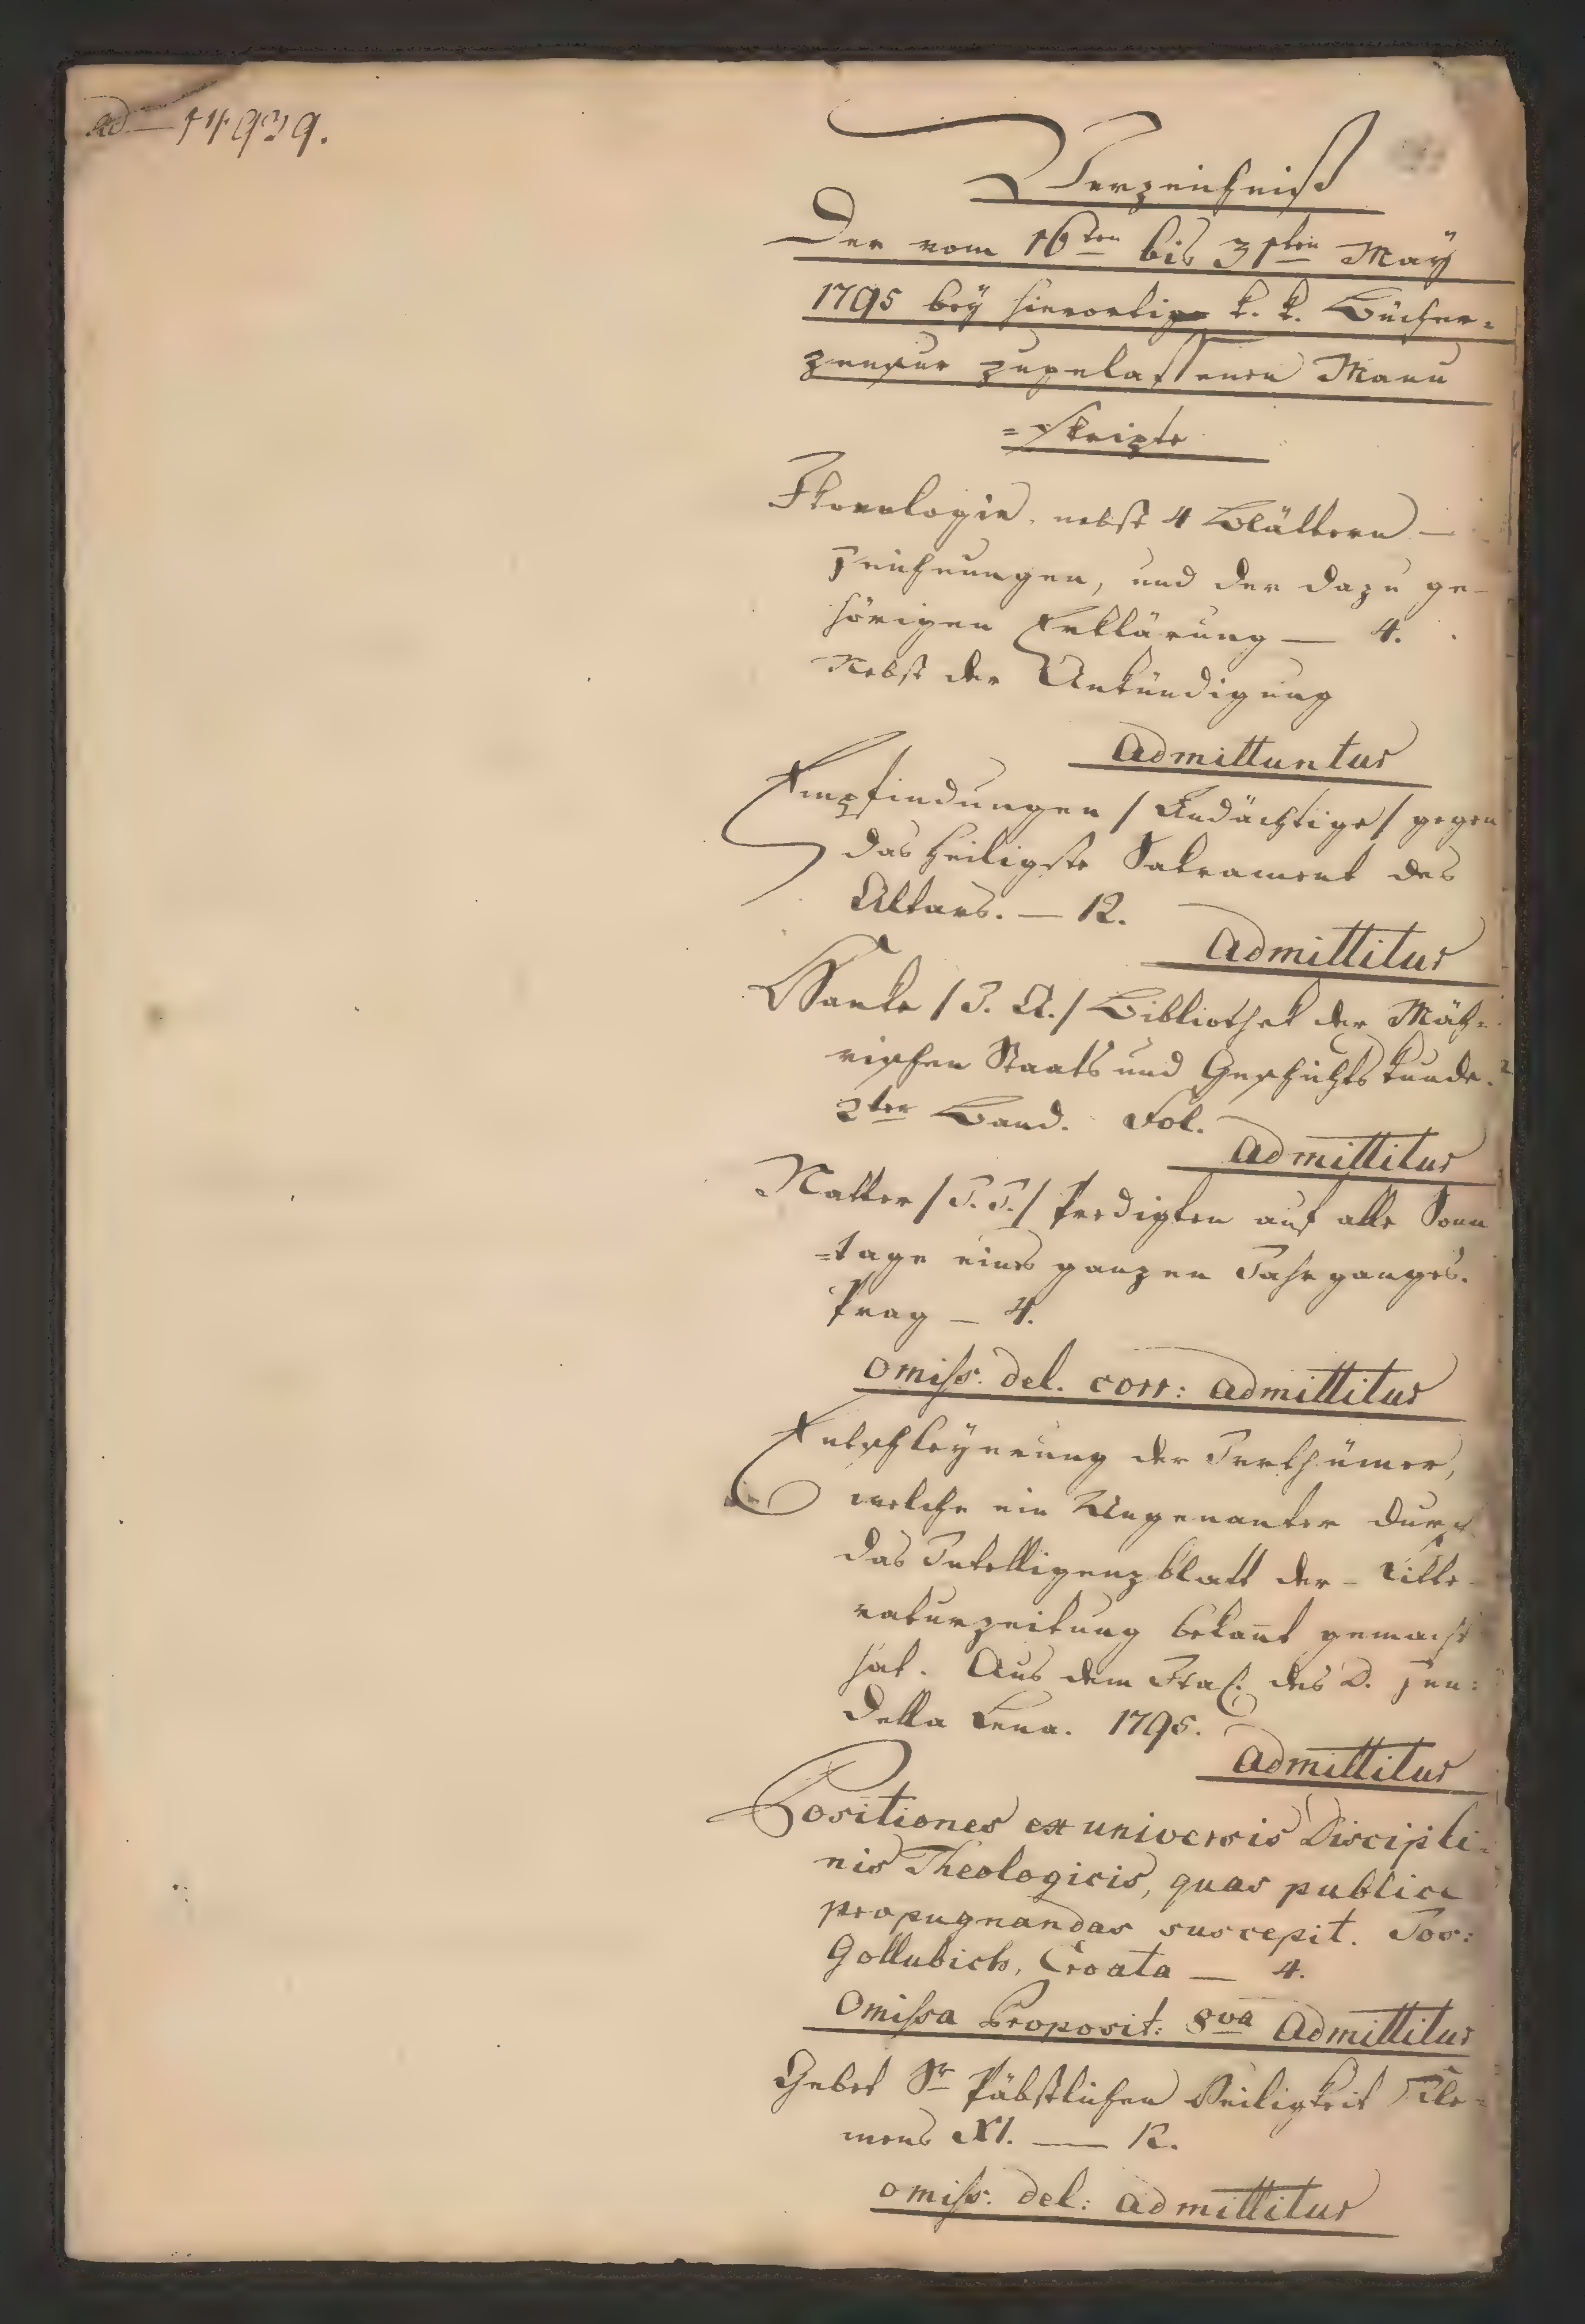 ad — 14939.
Verzeichniß
Der vom 16ten bis 31ten May
1795 bey hierortig k. k. Bücher=
zensur zugelassenen Manu
=skripte
Ikonologie. nebst 4 Blättern —
Zeichnungen, und der dazu ge-
hörigen Erklärung — 4.
Nebst der Ankündigung
Admittuntur
Empfindungen / Andächtige / gegen
das heiligste Sakrament des
Altars. — 12.
Admittitur
Hanke / J. A. / Bibliothek der Mäh=
rischen Staats und Geschichtskunde.
2ter Band. Fol.
Admittitur
Natter / J. J. / Predigten auf alle Sonn
=tage eines ganzen Jahrganges.
Prag — 4.
omiss. del. corr: admittitur
Entschleyerung der Irrthümer,
welche ein Ungenanter durch
das Intelligenzblatt der - Litte-
raturzeitung bekant gemacht
hat. Aus dem Ital. des D. Jun:
della Lena. 1795.
Admittitur
Positiones ex universis Discipli-
nis Theologicis, quas publice
propugnandas suscepit. Jos:
Gollubich, Croata — 4.
Omissa Proposit: 8va Admittitur
Gebet Sr Päbstlichen Heiligkeit Kle=
mens XI. — 12.
omiss. del: admittitur